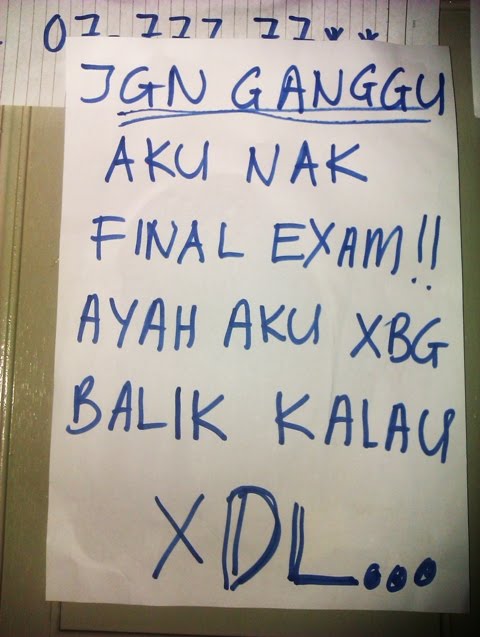 JGN GANGGU
AKU NAK
FINAL EXAM!!
AYAH AKU XBG
BALIK KALAU
XDL...